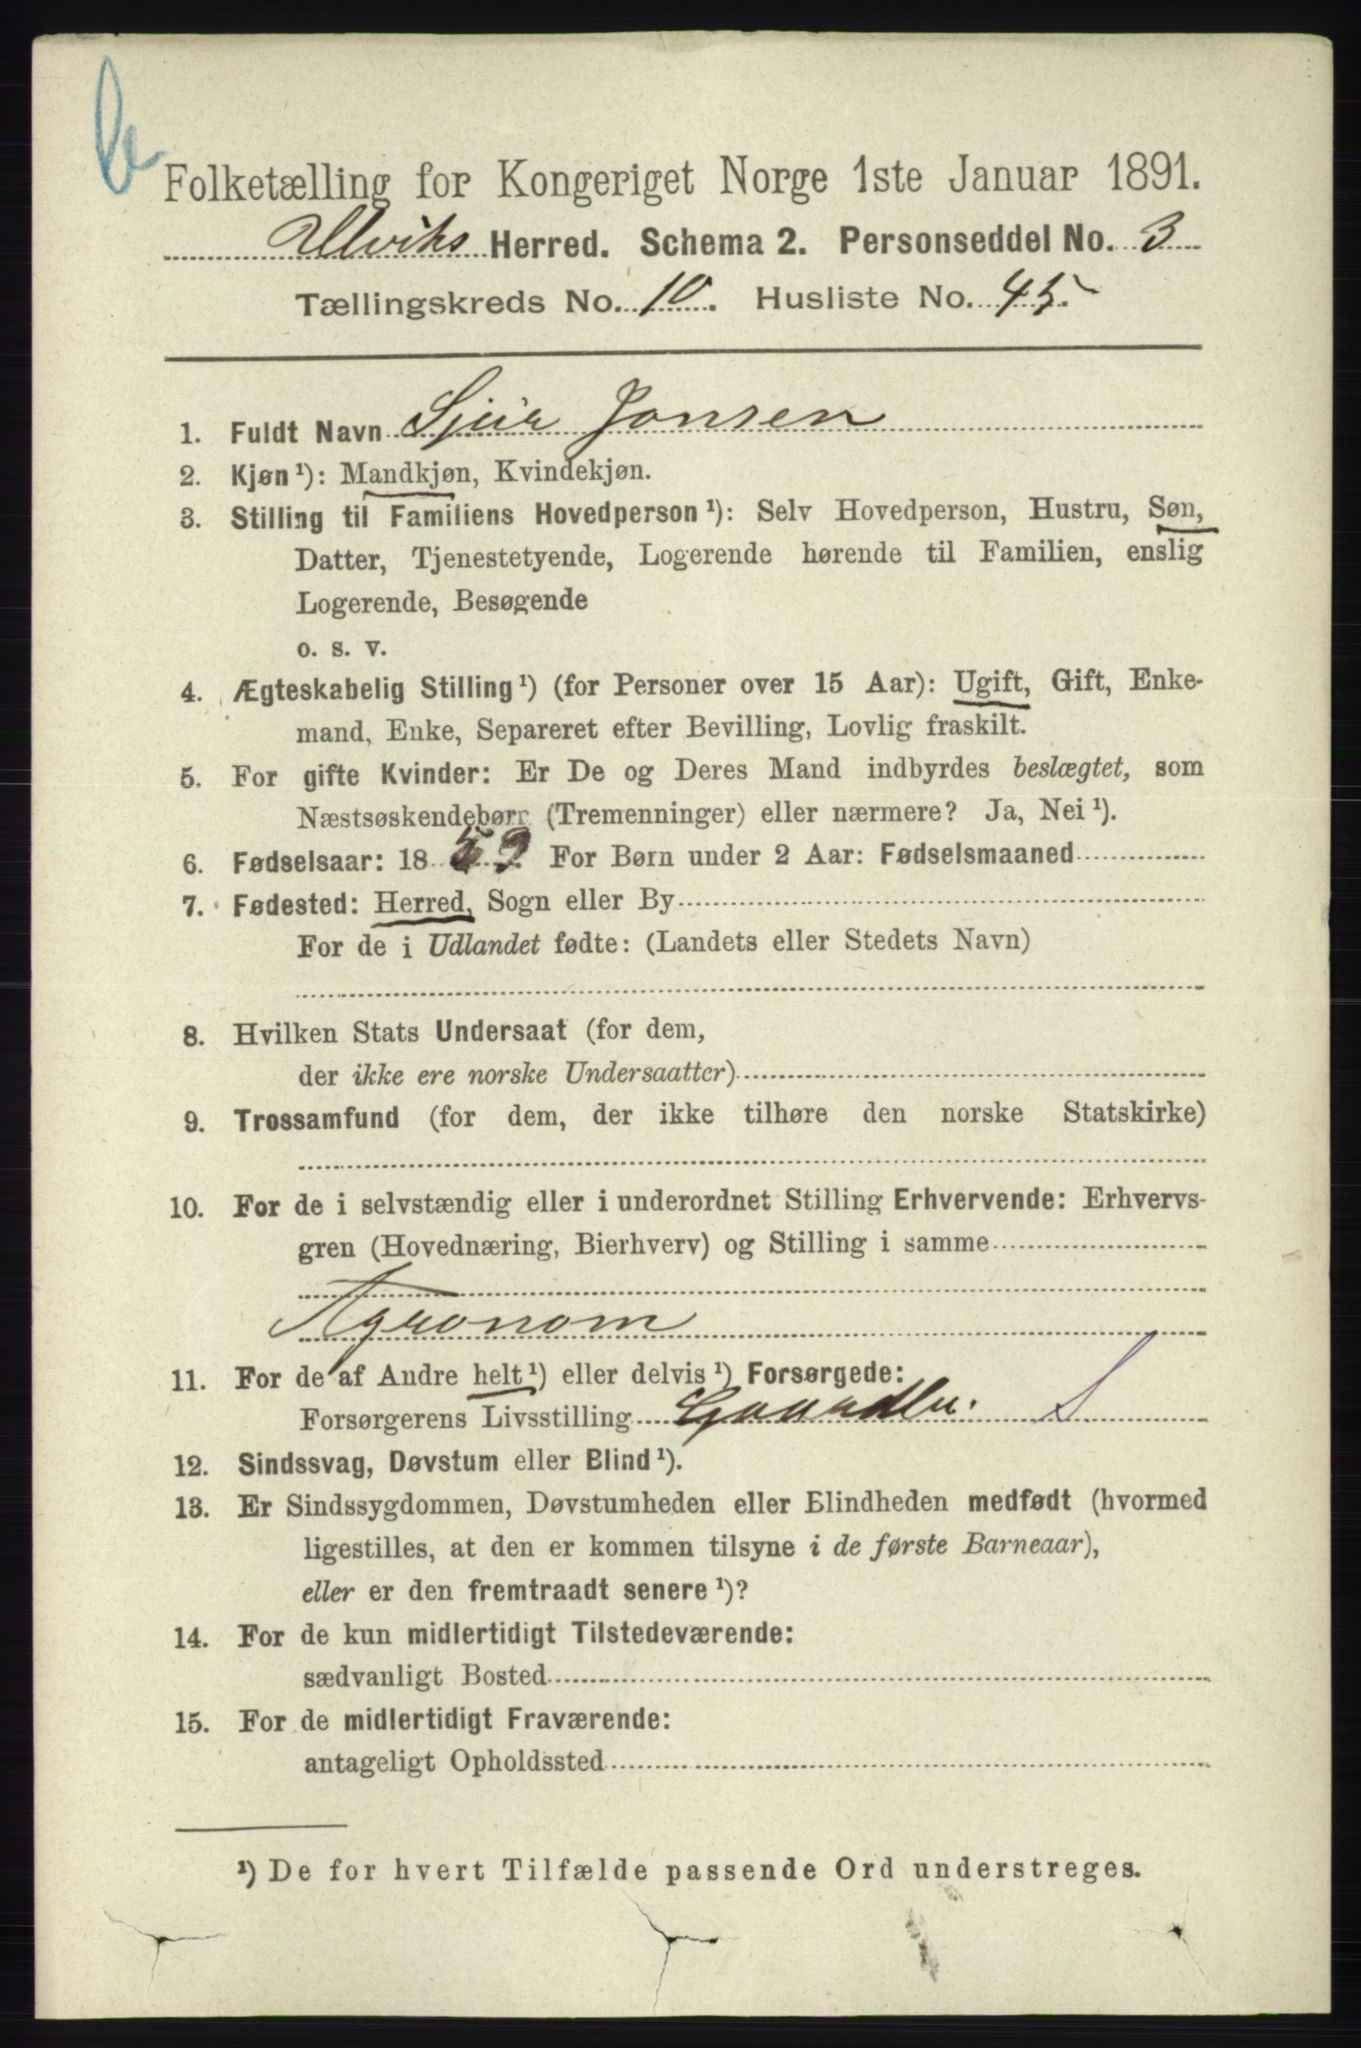 Folketælling for Kongeriget Norge 1ste Januar 1891.
Ulviks Herred. Schema 2. Personseddel No. 3
Tællingskreds No. 10. Husliste No. 45.
1. Fuldt Navn Sjur Jonsen
2. Kjøn¹): Mandkjøn, Kvindekjøn.
3. Stilling til Familiens Hovedperson¹): Selv Hovedperson, Hustru, Søn,
Datter, Tjenestetyende, Logerende hørende til Familien, enslig
Logerende, Besøgende
o. s. v.
4. Ægteskabelig Stilling¹) (for Personer over 15 Aar): Ugift, Gift, Enke-
mand, Enke, Separeret efter Bevilling, Lovlig fraskilt.
5. For gifte Kvinder: Er De og Deres Mand indbyrdes beslægtet, som
Næstsøskendebørn (Tremenninger) eller nærmere? Ja, Nei¹).
6. Fødselsaar: 1859 For Børn under 2 Aar: Fødselsmaaned
7. Fødested: Herred, Sogn eller By
For de i Udlandet fødte: (Landets eller Stedets Navn)
8. Hvilken Stats Undersaat (for dem,
der ikke ere norske Undersaatter)
9. Trossamfund (for dem, der ikke tilhøre den norske Statskirke)
10. For de i selvstændig eller i underordnet Stilling Erhvervende: Erhvervs-
gren (Hovednæring, Bierhverv) og Stilling i samme
Agronom
11. For de af Andre helt¹) eller delvis¹) Forsørgede:
Forsørgerens Livsstilling S
12. Sindssvag, Døvstum eller Blind¹).
13. Er Sindssygdommen, Døvstumheden eller Blindheden medfødt (hvormed
ligestilles, at den er kommen tilsyne i de første Barneaar),
eller er den fremtraadt senere¹)?
14. For de kun midlertidigt Tilstedeværende:
sædvanligt Bosted
15. For de midlertidigt Fraværende:
antageligt Opholdssted
¹) De for hvert Tilfælde passende Ord understreges.